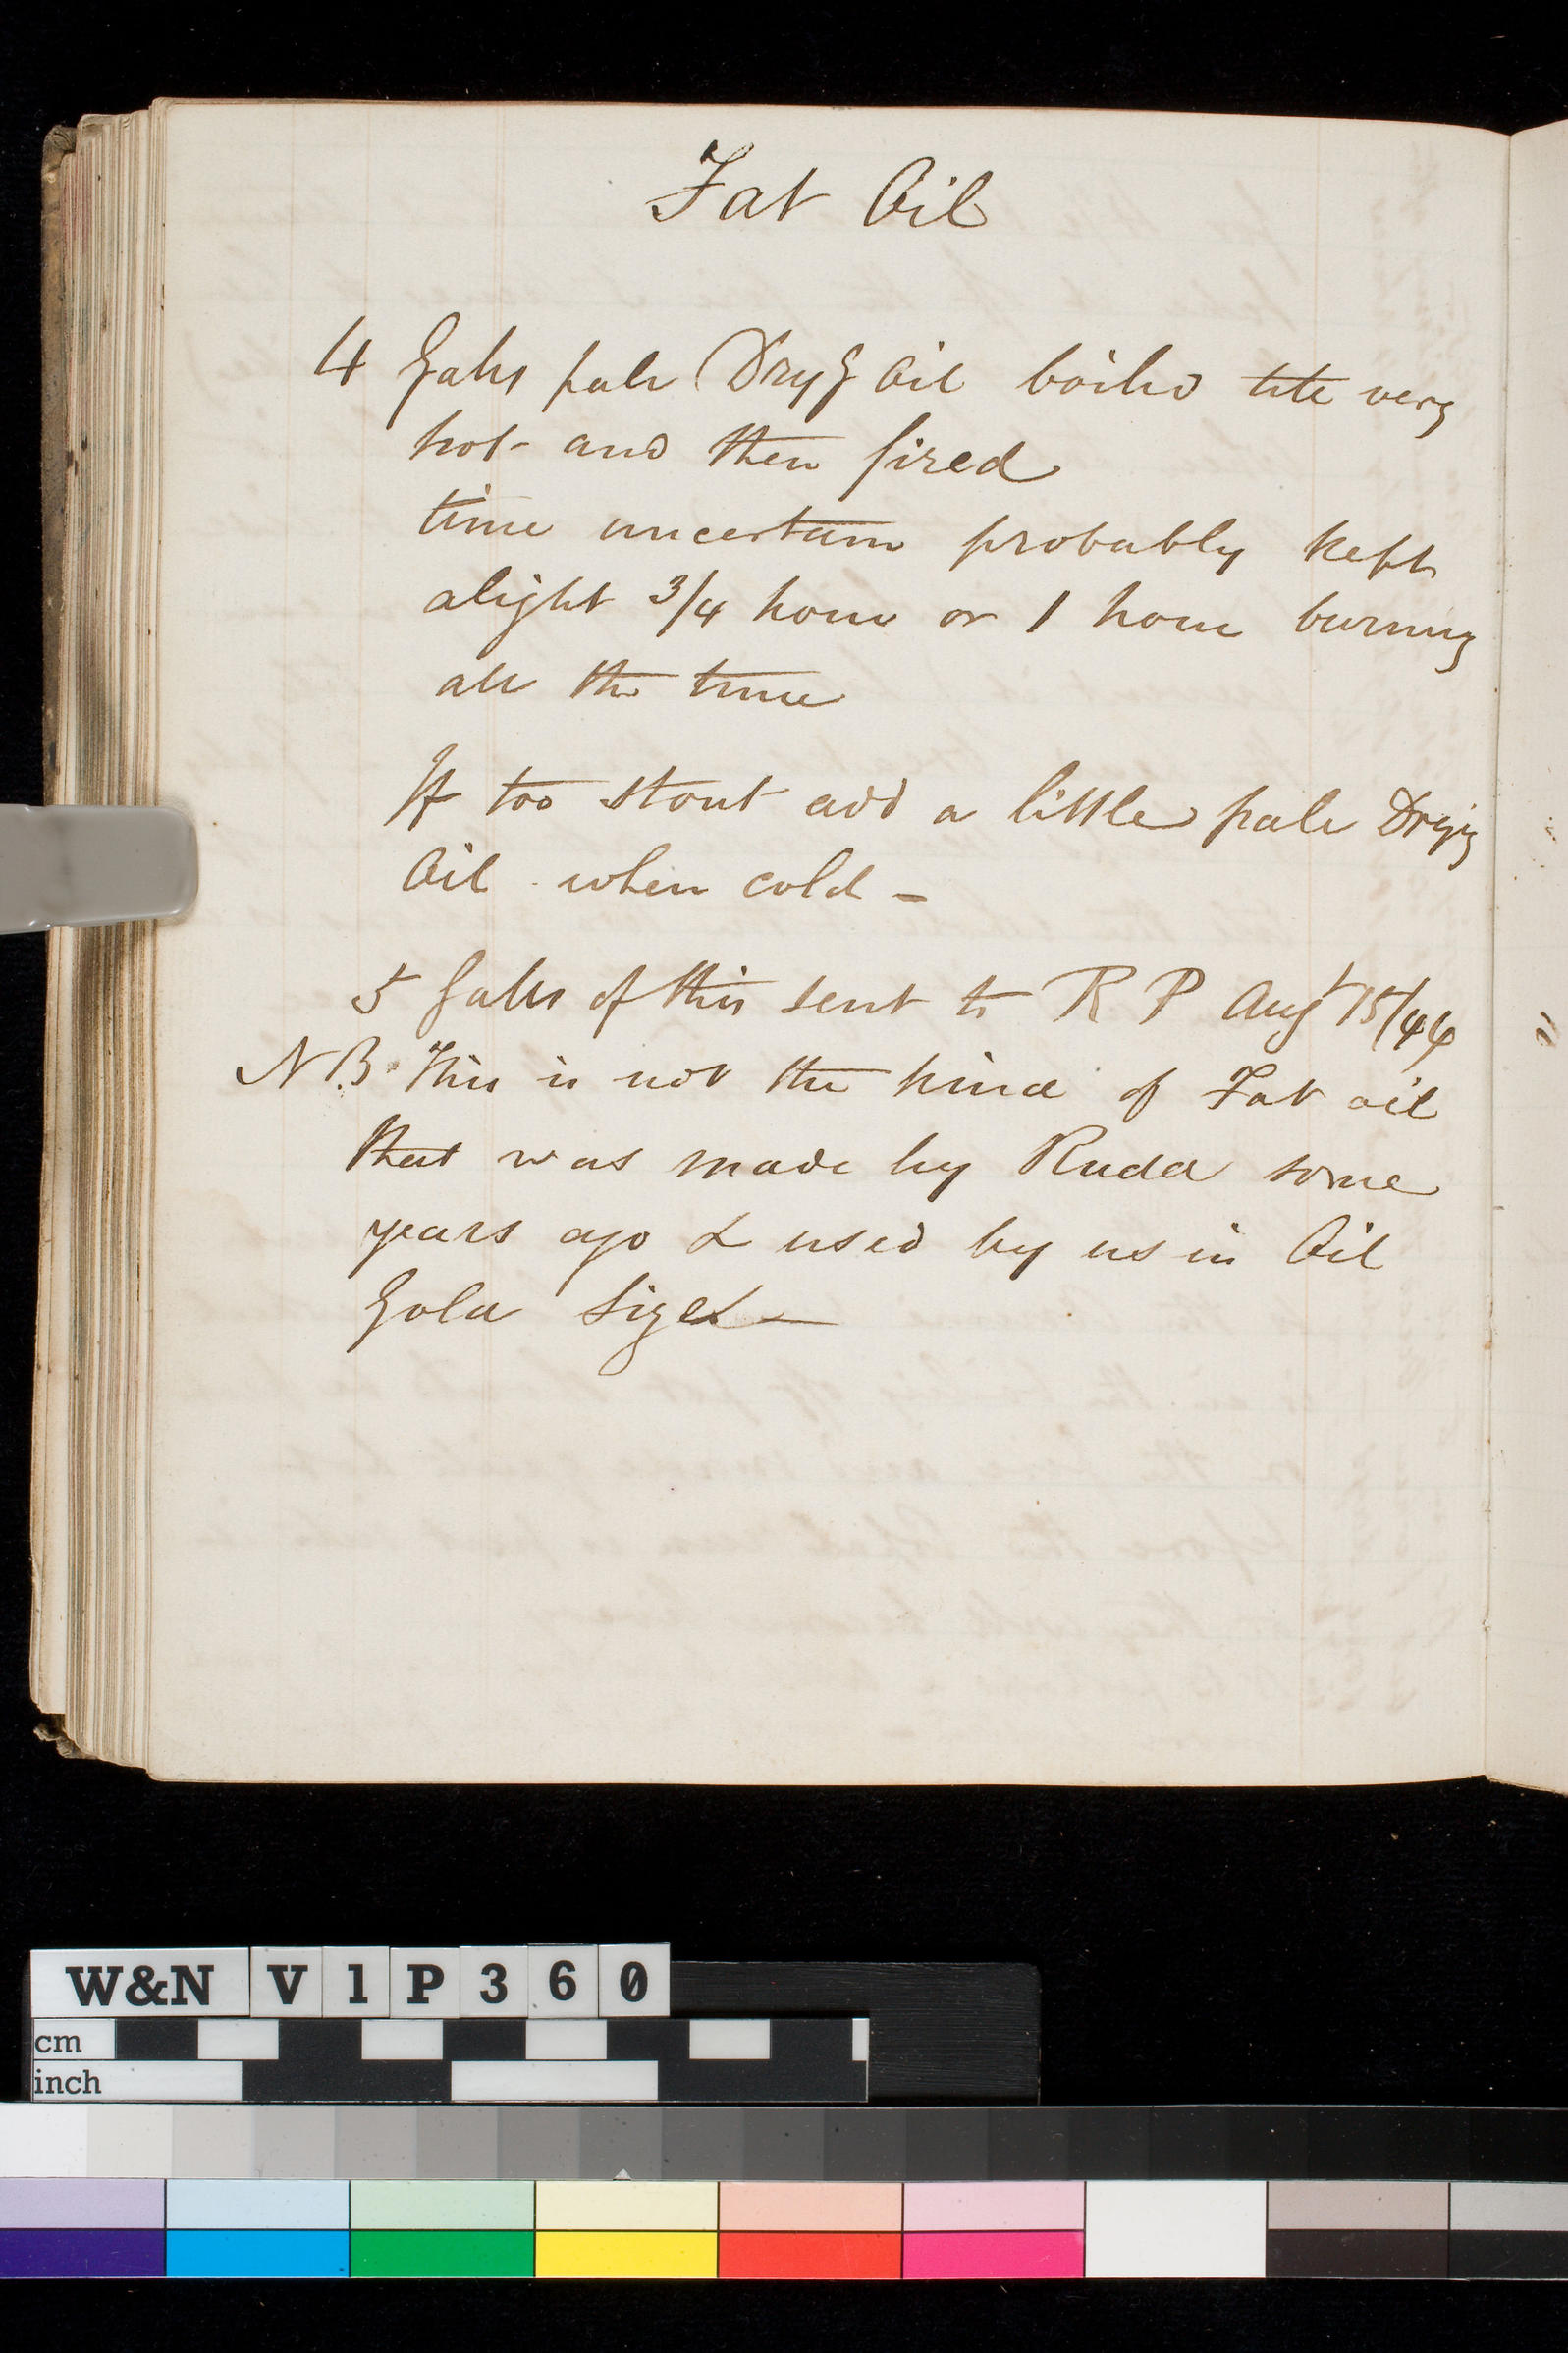 Fat Oil
4 Galls pale Dryg Oil boiled till very
hot and then fired
time uncertain probably kept
alight 3/4 hour or 1 hour burning
all the time
If too stout add a little pale Dryig
Oil when cold -
5 Galls of this sent to R P Augt 15/44
N.B. This is not the kind of Fat oil
that was made by Rudd some
years ago & used by us in Oil
Gold Size
W&N V1P360
cm
inch